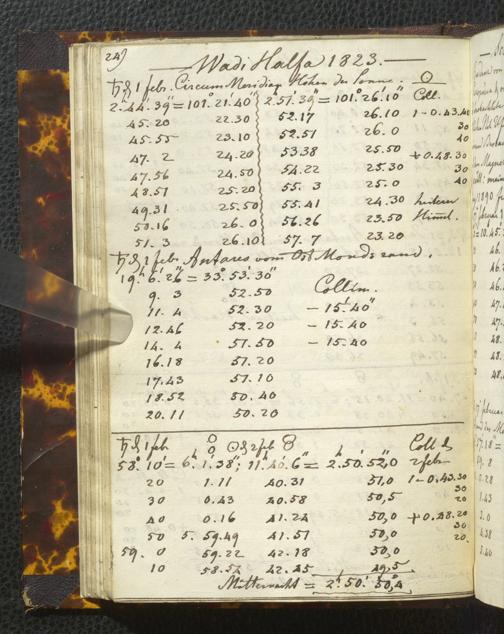 24)
Wadi Halfa 1823.
♄ d 1 febr. Circum Meridian Höhen der Sonne. ☉
2.44.39" = 101°.21.40" 2.51.39" = 101°.26.10" Coll.
45.20 22.30 52.17 26.10 1 - 0.43.40
45.55 23.10 52.51 26.0 30
40
47. 2 24.20 53.38 25.50 + 0.48.30
47.56 24.50 54.22 25.30 30
48.51 25.20 55. 3 25.0 40
49.31 25.50 55.41 24.30 heiterer
50.16 26.0 56.26 23.50 Himml.
51. 3 26.10 57. 7 23.20
♄ d 1 febr Antares vom Ost Monds rand.
19.h 6.' 26" = 33°.53.'30"
9. 3 52.50 Collim.
11. 4 52.30 - 15.'40"
12.46 52.20 - 15.40
14. 4 51.50 - 15.40
16.18 51.20
17.43 51.10
18.52 50.40
20.11 50.20
♄ d 1 feb ☉ d 2 feb Coll d
58°.10' = 6.h 1.'38"; 11.h 40.'6" = 2.h 50.'52,0 2 feb
20 1.11 40.31 51,0 1 - 0.43.30
30
30 0.43 40.58 50,5 20
40 0.16 41.24 50,0 + 0.48.20
30
50 5. 59.49 41.51 50,0 20
59. 0 59.22 42.18 50,0
10 58.52 42.45 49,5
Mitternacht = 2.h 50.' 50,4